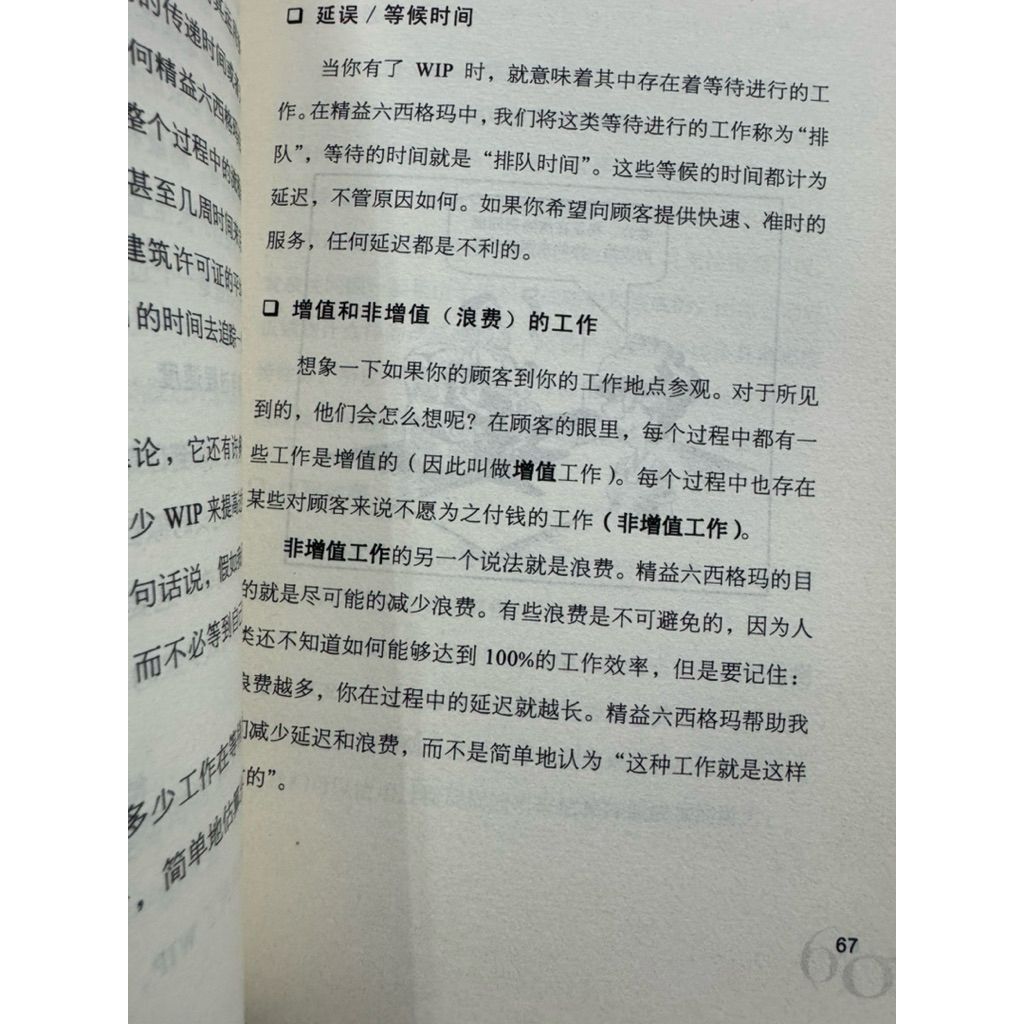 的传递时间或
何精益六西格玛
整个过程中的
甚至几周时间来
建筑许可证的平
的时间去追踪一
论，它还有许
少 WIP 来提高
句话说，假如
而不必等到自己
多少工作在等
，简单地估
□ 延误 / 等候时间
当你有了 WIP 时，就意味着其中存在着等待进行的工
作。在精益六西格玛中，我们将这类等待进行的工作称为“排
队”，等待的时间就是“排队时间”。这些等候的时间都计为
延迟，不管原因如何。如果你希望向顾客提供快速、准时的
服务，任何延迟都是不利的。
□ 增值和非增值（浪费）的工作
想象一下如果你的顾客到你的工作地点参观。对于所见
到的，他们会怎么想呢？在顾客的眼里，每个过程中都有一
些工作是增值的（因此叫做增值工作）。每个过程中也存在
某些对顾客来说不愿为之付钱的工作（非增值工作）。
非增值工作的另一个说法就是浪费。精益六西格玛的目
的就是尽可能的减少浪费。有些浪费是不可避免的，因为人
类还不知道如何能够达到 100%的工作效率，但是要记住：
浪费越多，你在过程中的延迟就越长。精益六西格玛帮助我
们减少延迟和浪费，而不是简单地认为“这种工作就是这样
的”。
67